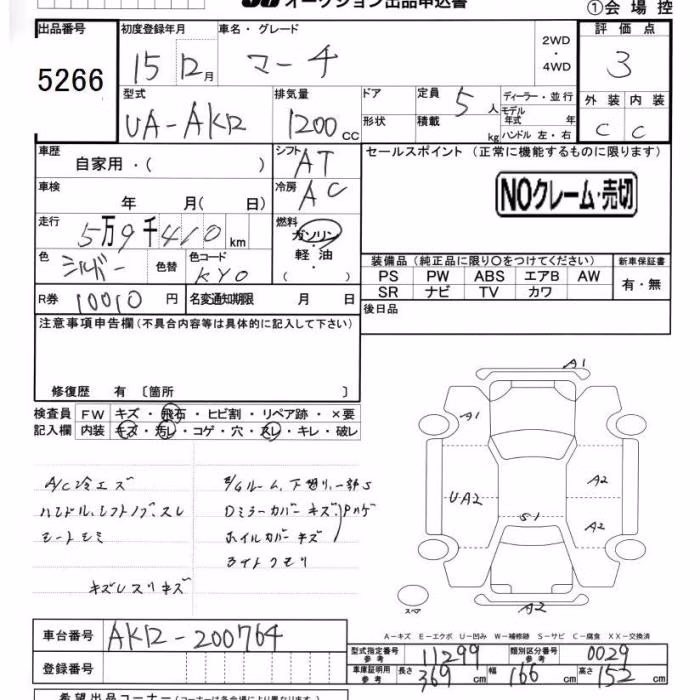 オークション出品申込書
①会場控
出品番号
5266
初度登録年月
15 12月
車名・グレード
マーチ
2WD
・
4WD
評価点
3
型式
UA-AK12
排気量
1200cc
ドア
形状
定員 5人
積載 kg
ディーラー・並行
モデル年式 年
ハンドル 左・右
外装 内装
C C
車歴
自家用・( )
シフト AT
車検
年 月( 日)
冷房 AC
走行
5万9千410km
燃料
ガソリン
・
軽油
( )
色 シルバー
色替
色コード
KY0
R券 10010円
名変通知期限 月 日
セールスポイント (正常に機能するものに限ります)
NOクレーム・売切
装備品 (純正品に限り○をつけてください)
新車保証書
PS PW ABS エアB AW
SR ナビ TV カワ
有・無
後日品
注意事項申告欄 (不具合内容等は具体的に記入して下さい)
修復歴 有 〔箇所 〕
検査員記入欄
FW キズ・飛石・ヒビ割・リペア跡・×要
内装 キズ・汚レ・コゲ・穴・スレ・キレ・破レ
A/C冷エズ
ハンドル、シフトノブ、スレ
シートシミ
キズレスリキズ
下廻リ、一部S
Dミラーカバーキズ
Pハゲ
ホイルカバーキズ
ライトクモリ
A1
A1
UA2
S1
A2
A2
A2
スペア
A-キズ E-エクボ U-凹み W-補修跡 S-サビ C-腐食 XX-交換済
車台番号
AK12-200764
登録番号
型式指定番号
参考
11299
類別区分番号
参考
0029
車庫証明用
参考
長さ 369cm
幅 166cm
高さ 152cm
希望出品コーナー